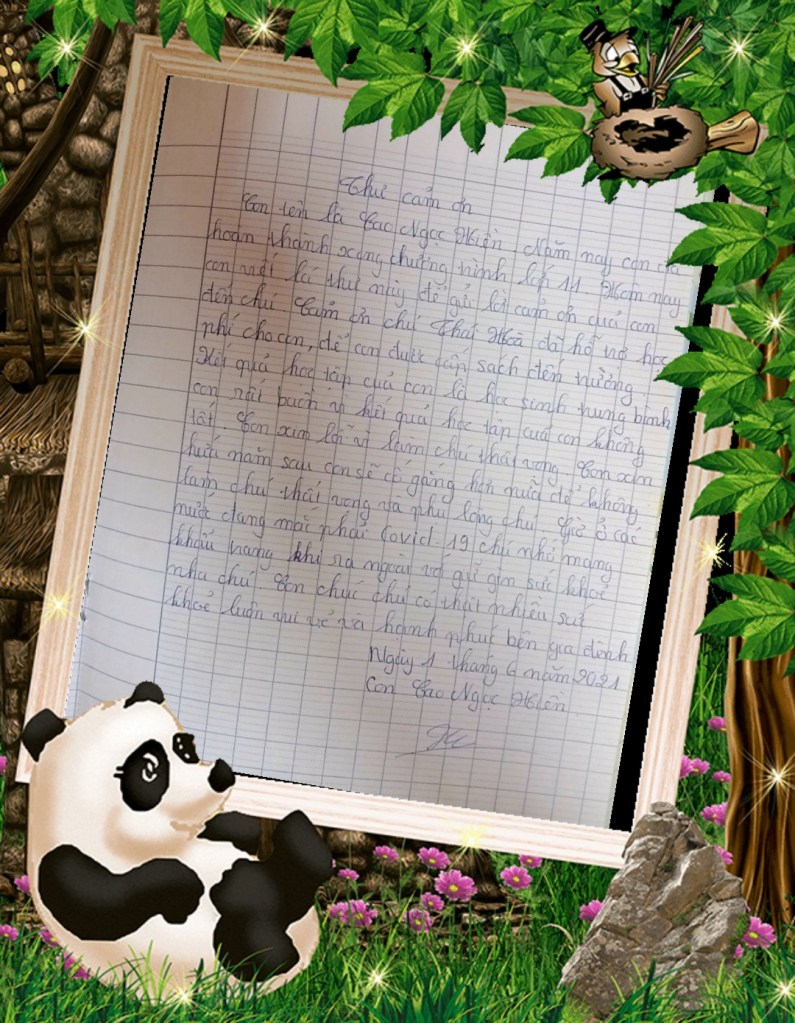 Thư cảm ơn
Con tên là Cao Ngọc Hiền. Năm nay con đã
hoàn thành xong chương trình lớp 11. Hôm nay
con viết lá thư này để gửi lời cảm ơn của con
đến chú. Cảm ơn chú Thái Hoà đã hỗ trợ học
phí cho con, để con được cắp sách đến trường.
Kết quả học tập của con là học sinh trung bình
con rất buồn vì kết quả học tập của con không
tốt. Con xin lỗi vì làm chú thất vọng. Con xin
hứa năm sau con sẽ cố gắng hơn nữa để không
làm chú thất vọng và phụ lòng chú. Giờ ở các
nước đang mắc phải Covid-19 chú nhớ mang
khẩu trang khi ra ngoài và giữ gìn sức khoẻ
nha chú. Con chúc chú có thật nhiều sức
khoẻ luôn vui vẻ và hạnh phúc bên gia đình
Ngày 1 tháng 6 năm 2021
Con Cao Ngọc Hiền